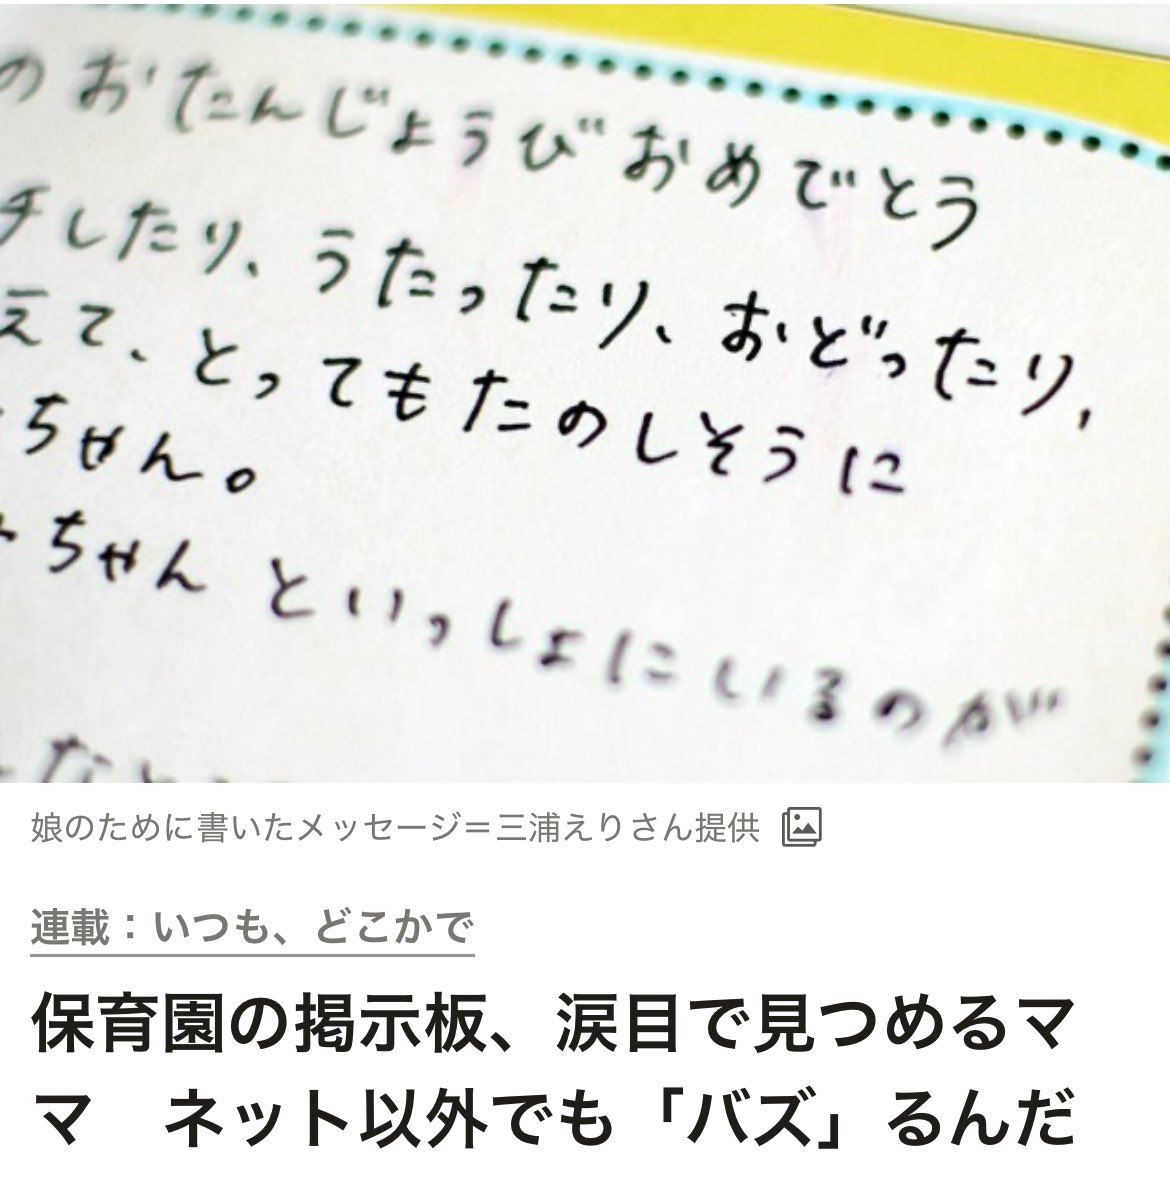 のおたんじょうびおめでとう
チしたり、うたったり、おどったり、
えて、とってもたのしそうに
ちゃん。
ちゃんといっしょにいるのが
娘のために書いたメッセージ＝三浦えりさん提供
連載：いつも、どこかで
保育園の掲示板、涙目で見つめるマ
マ　ネット以外でも「バズ」るんだ